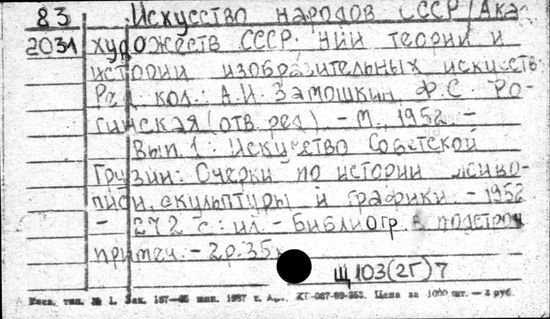 83 Искусство народов СССР / Ака-
2031 художеств СССР. НИИ теории и
истории изобразительных искусств.
Ред. кол.: А.И. Замошкин, Ф.С. Ро-
гинская (отв. ред.) - М., 1952 -
Вып. 1: Искусство Советской
Грузии: Очерки по истории живо-
писи, скульптуры и графики. - 1952
- 272 с.: ил. - Библиогр. в подстроч
примеч. - 2р. 35к
Щ103(2Г)7
тип. № 1. Зак. 167—65 1987 г. Цена за 1000 шт. — 3 руб.